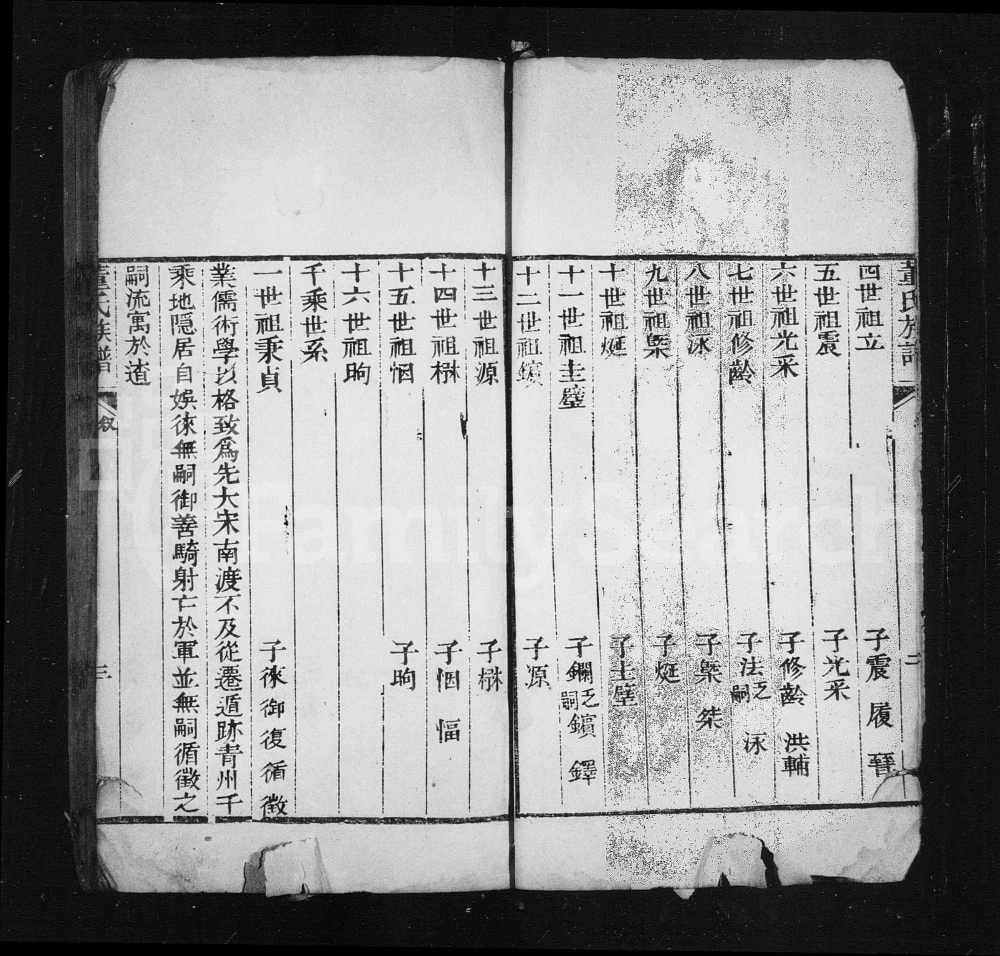 董氏族譜 二
四世祖立 子震 履 晉
五世祖震 子光采
六世祖光采 子修齡 洪輔
七世祖修齡 子法乏嗣 泳
八世祖泳 子㮚 桀
九世祖㮚 子烻
十世祖烻 子圭璧
十一世祖圭璧 子鑭乏嗣 鑌 鐸
十二世祖鑌 子源
十三世祖源 子楙
十四世祖楙 子悃 愊
十五世祖悃 子昫
十六世祖昫
千乘世系
一世祖秉貞 子徠 御 復 循 徵
業儒術學以格致爲先大宋南渡不及從遷遁跡青州千
乘地隱居自娛徠無嗣御善騎射亡於軍並無嗣循徵之
嗣流寓於遼
董氏族譜 叙 三
FamilySearch